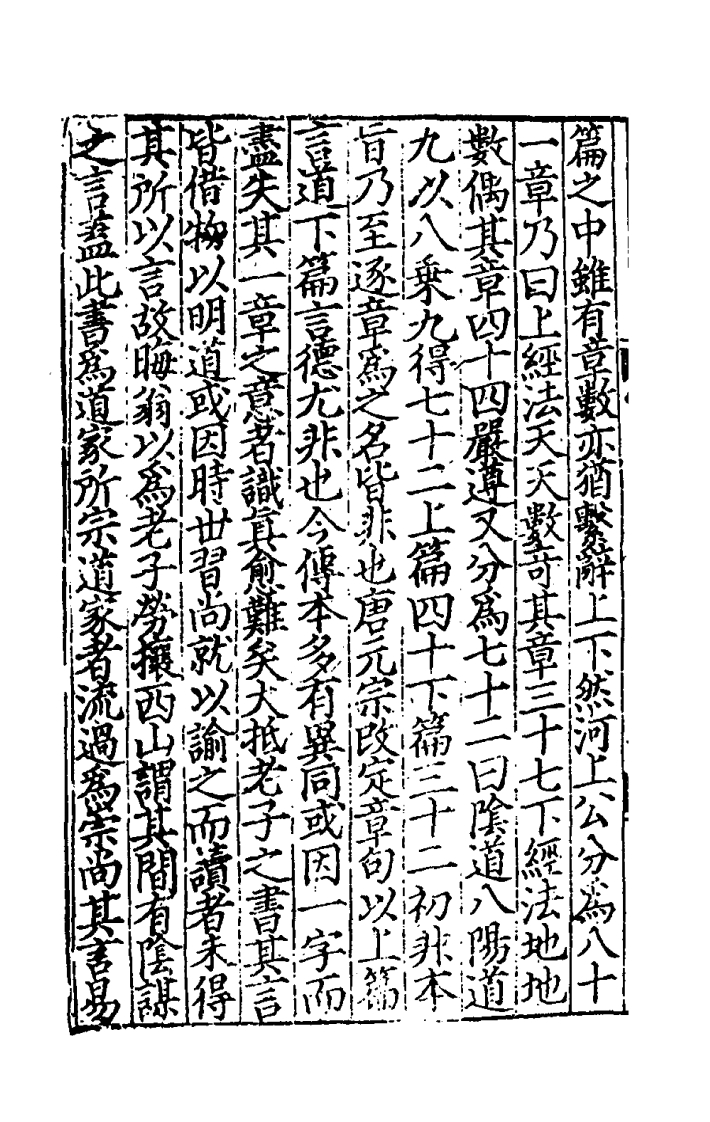 篇之中雖有章數亦猶繫辭上下然河上公分爲八十
一章乃曰上經法天天數竒其章三十七下經法地地
數偶其章四十四嚴遵又分爲七十二曰陰道八陽道
九以八乗九得七十二上篇四十下篇三十二初非本
旨乃至逐章爲之名皆非也唐元宗改定章句以上篇
言道下篇言德尤非也今傳本多有異同或因一字而
盡失其一章之意者識眞愈難矣大抵老子之書其言
皆借物以明道或因時世習尚就以諭之而讀者未得
其所以言故晦翁以爲老子勞攘西山謂其間有陰謀
之言葢此書爲道家所宗道家者流過爲宗尚其言易